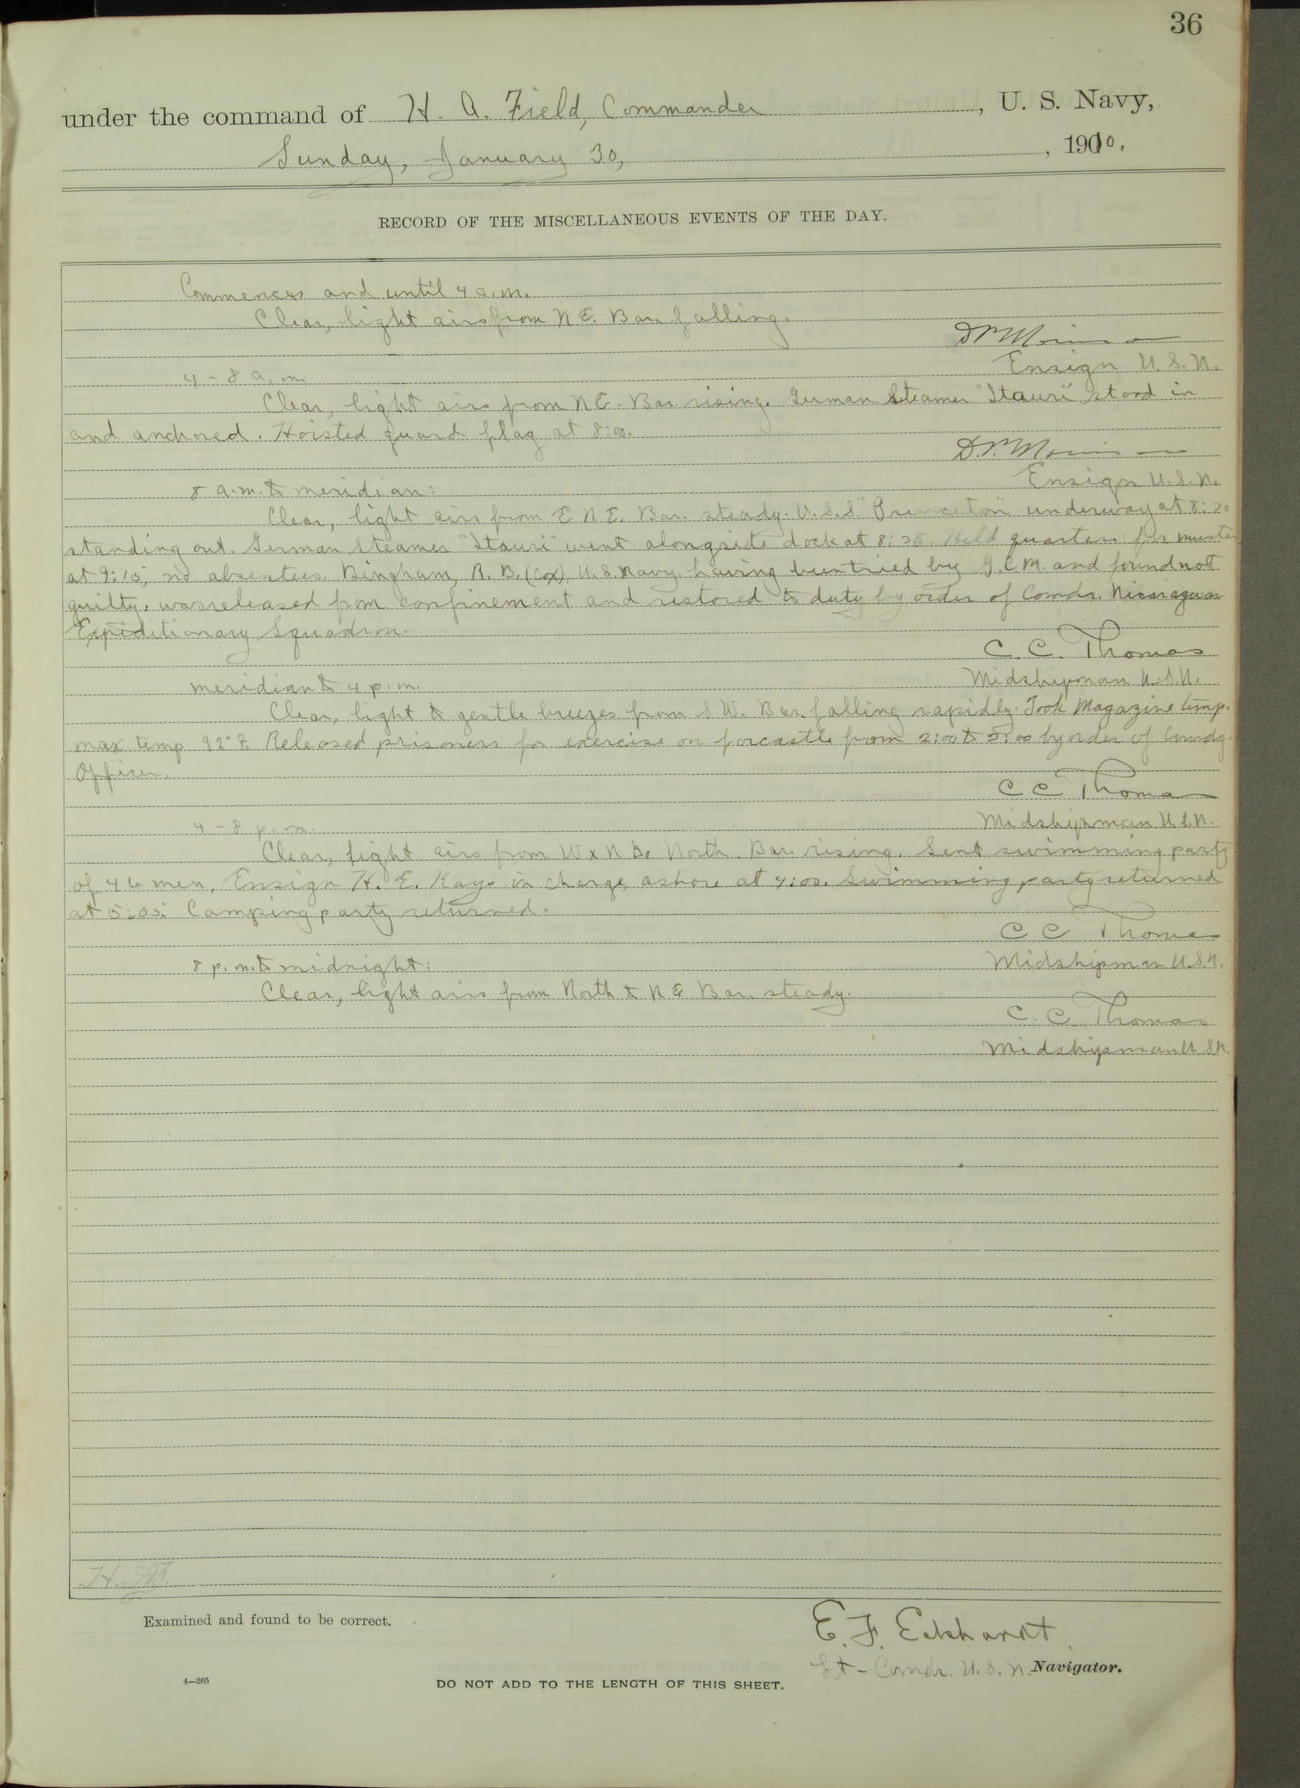 36
under the command of H. A. Field, Commander, U. S. Navy,
Sunday, January 30, 1910.
RECORD OF THE MISCELLANEOUS EVENTS OF THE DAY.
Commences and until 4 a.m.
Clear, light airs from NE. Bar falling.
Ensign U.S.N.
4 - 8 a.m.
Clear, light airs from NE. Bar rising. German Steamer "Itauri" stood in
and anchored. Hoisted guard flag at 8:00.
Ensign U.S.N.
8 a.m. to meridian:
Clear, light airs from E N E. Bar. steady. U.S.S. "Princeton" underway at 8:20
standing out. German Steamer "Itauri" went alongside dock at 8:20. Held quarters for muster
at 9:15; no absentees. Bingham, R. B. (Cox), U.S. Navy, having been tried by G.C.M. and found not
guilty, was released from confinement and restored to duty by order of Comdr. Nicaraguan
Expeditionary Squadron.
C. C. Thomas
Midshipman U.S.N.
meridian to 4 p.m.
Clear, light to gentle breezes from S W. Bar. falling rapidly. Took Magazine temp.
max temp 92° F. Released prisoners for exercise on forcastle from 2:00 to 3:00 by order of Comdg.
Officer.
C C Thomas
Midshipman U.S.N.
4 - 8 p.m.
Clear, light airs from W x N to North. Bar. rising. Sent swimming party
of 46 men, Ensign H. E. Kays in charge, ashore at 4:00. Swimming party returned
at 5:05. Camping party returned.
C C Thomas
Midshipman U.S.N.
8 p.m. to midnight:
Clear, light airs from North to NE Bar. steady.
C. C. Thomas
Midshipman U.S.N.
H.A.F.
Examined and found to be correct.
E. F. Eckhardt
Lt-Comdr. U.S.N. Navigator.
4—265
DO NOT ADD TO THE LENGTH OF THIS SHEET.